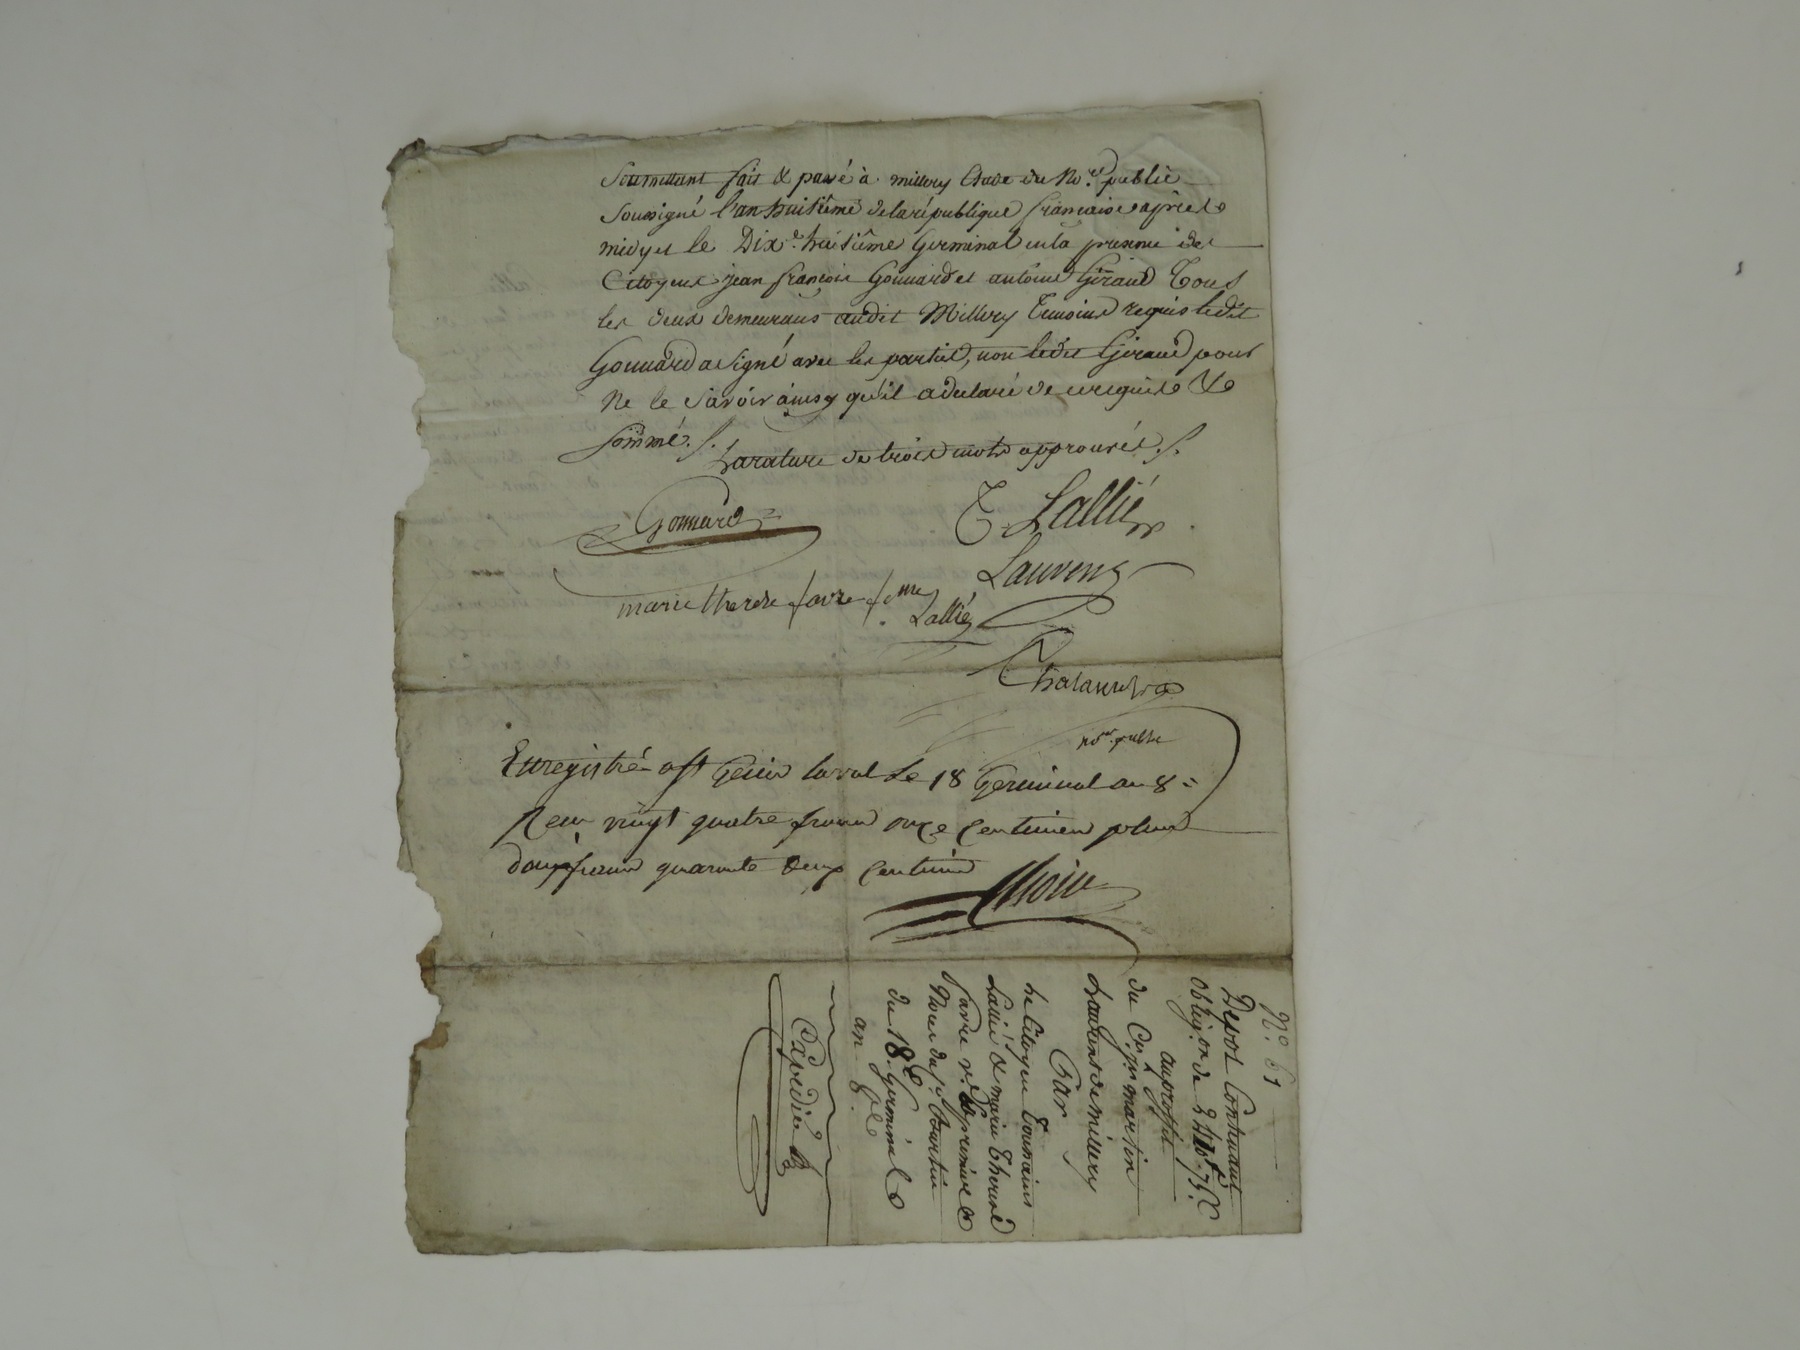 Soumettant fait & passé à millery Etude du No.re public
Soussigné l'an huitième de la république française après
midy et le Dixe. huitième Germinal en la presence des
Citoyens jean françois Gonnard et antoine Giraud Tous
les deux demeurans audit Millery Temoins requis ledit
Gonnard a signé avec les parties, non ledit Giraud pour
Ne le savoir ainsy qu'il a déclaré de ce requis &
sommé ./.
La rature de trois mots approuvés ./.
Gonnard
T. Lallié
Laurens
marie therese favre fme
Lallié
nore. public
Enregistré a St Genis laval le 18 Germinal an 8=
Reçu vingt quatre francs onze centimes plus
deux francs quarante deux centimes
No. 61
Depot Contenant
oblig.on de
au proffit
du Cen. martin
Laurens de millery
Par
Le Citoyen Toussains
Lallié & marie Therese
Favre
du 18e. Germinal
an 8e.
Expedié